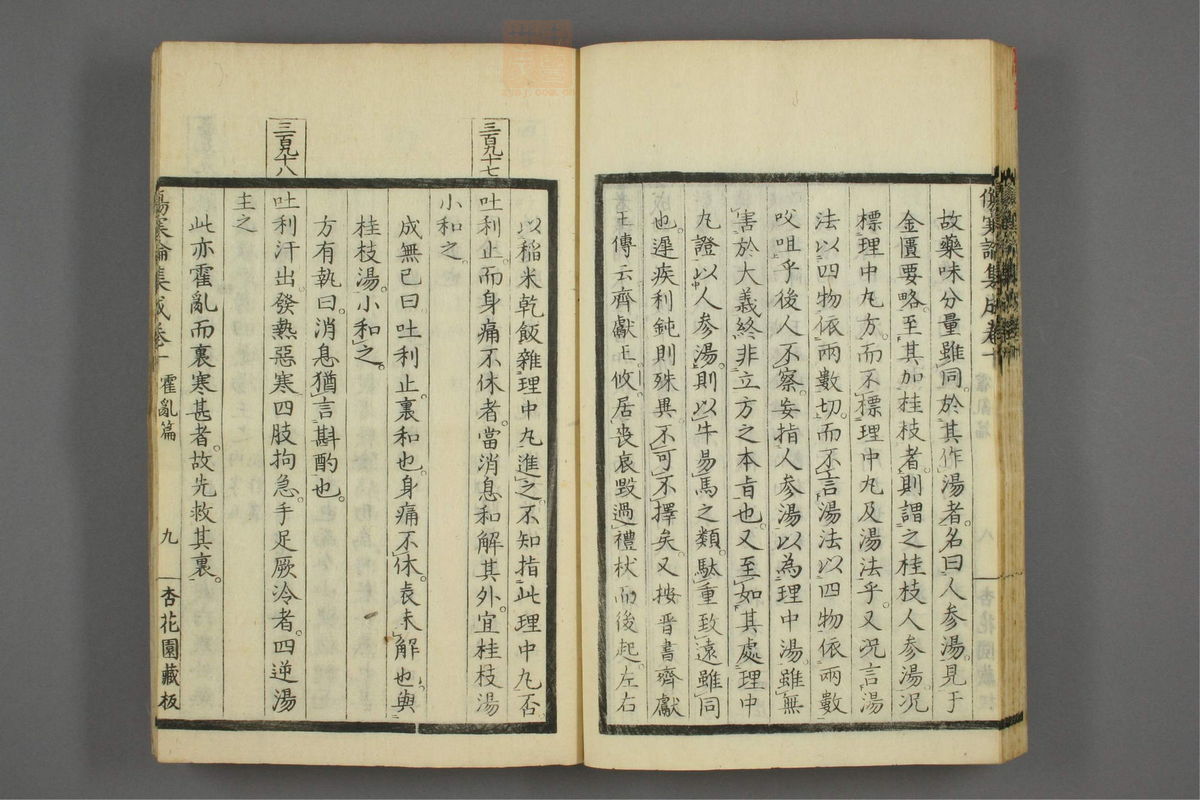 傷寒論集成卷十
故藥味分量雖同於其作湯者名曰人參湯見于
金匱要略至其加桂枝者則謂之桂枝人參湯況
標理中丸方而不標理中丸及湯法乎又況言湯
法以四物依兩數切而不言湯法以四物依兩數
㕮咀乎後人不察妄指人參湯以為理中湯雖無
害於大義終非立方之本旨也又至如其處理中
丸證以人參湯則以牛易馬之類駄重致遠雖同
也遲疾利鈍則殊異不可不擇矣又按晉書齊獻
王傳云齊獻王攸居喪哀毀過禮杖而後起左右
以稲米乾飯雜理中丸進之不知指此理中丸否
三百九十七
吐利止而身痛不休者當消息和解其外宜桂枝湯
小和之
成無已曰吐利止裏和也身痛不休表未解也與
桂枝湯小和之
方有執曰消息猶言斟酌也
三百九十八
吐利汗出發熱惡寒四肢拘急手足厥冷者四逆湯
主之
此亦霍亂而裏寒甚者故先救其裏
傷寒論集成卷十 霍亂篇 九 杏花園藏板